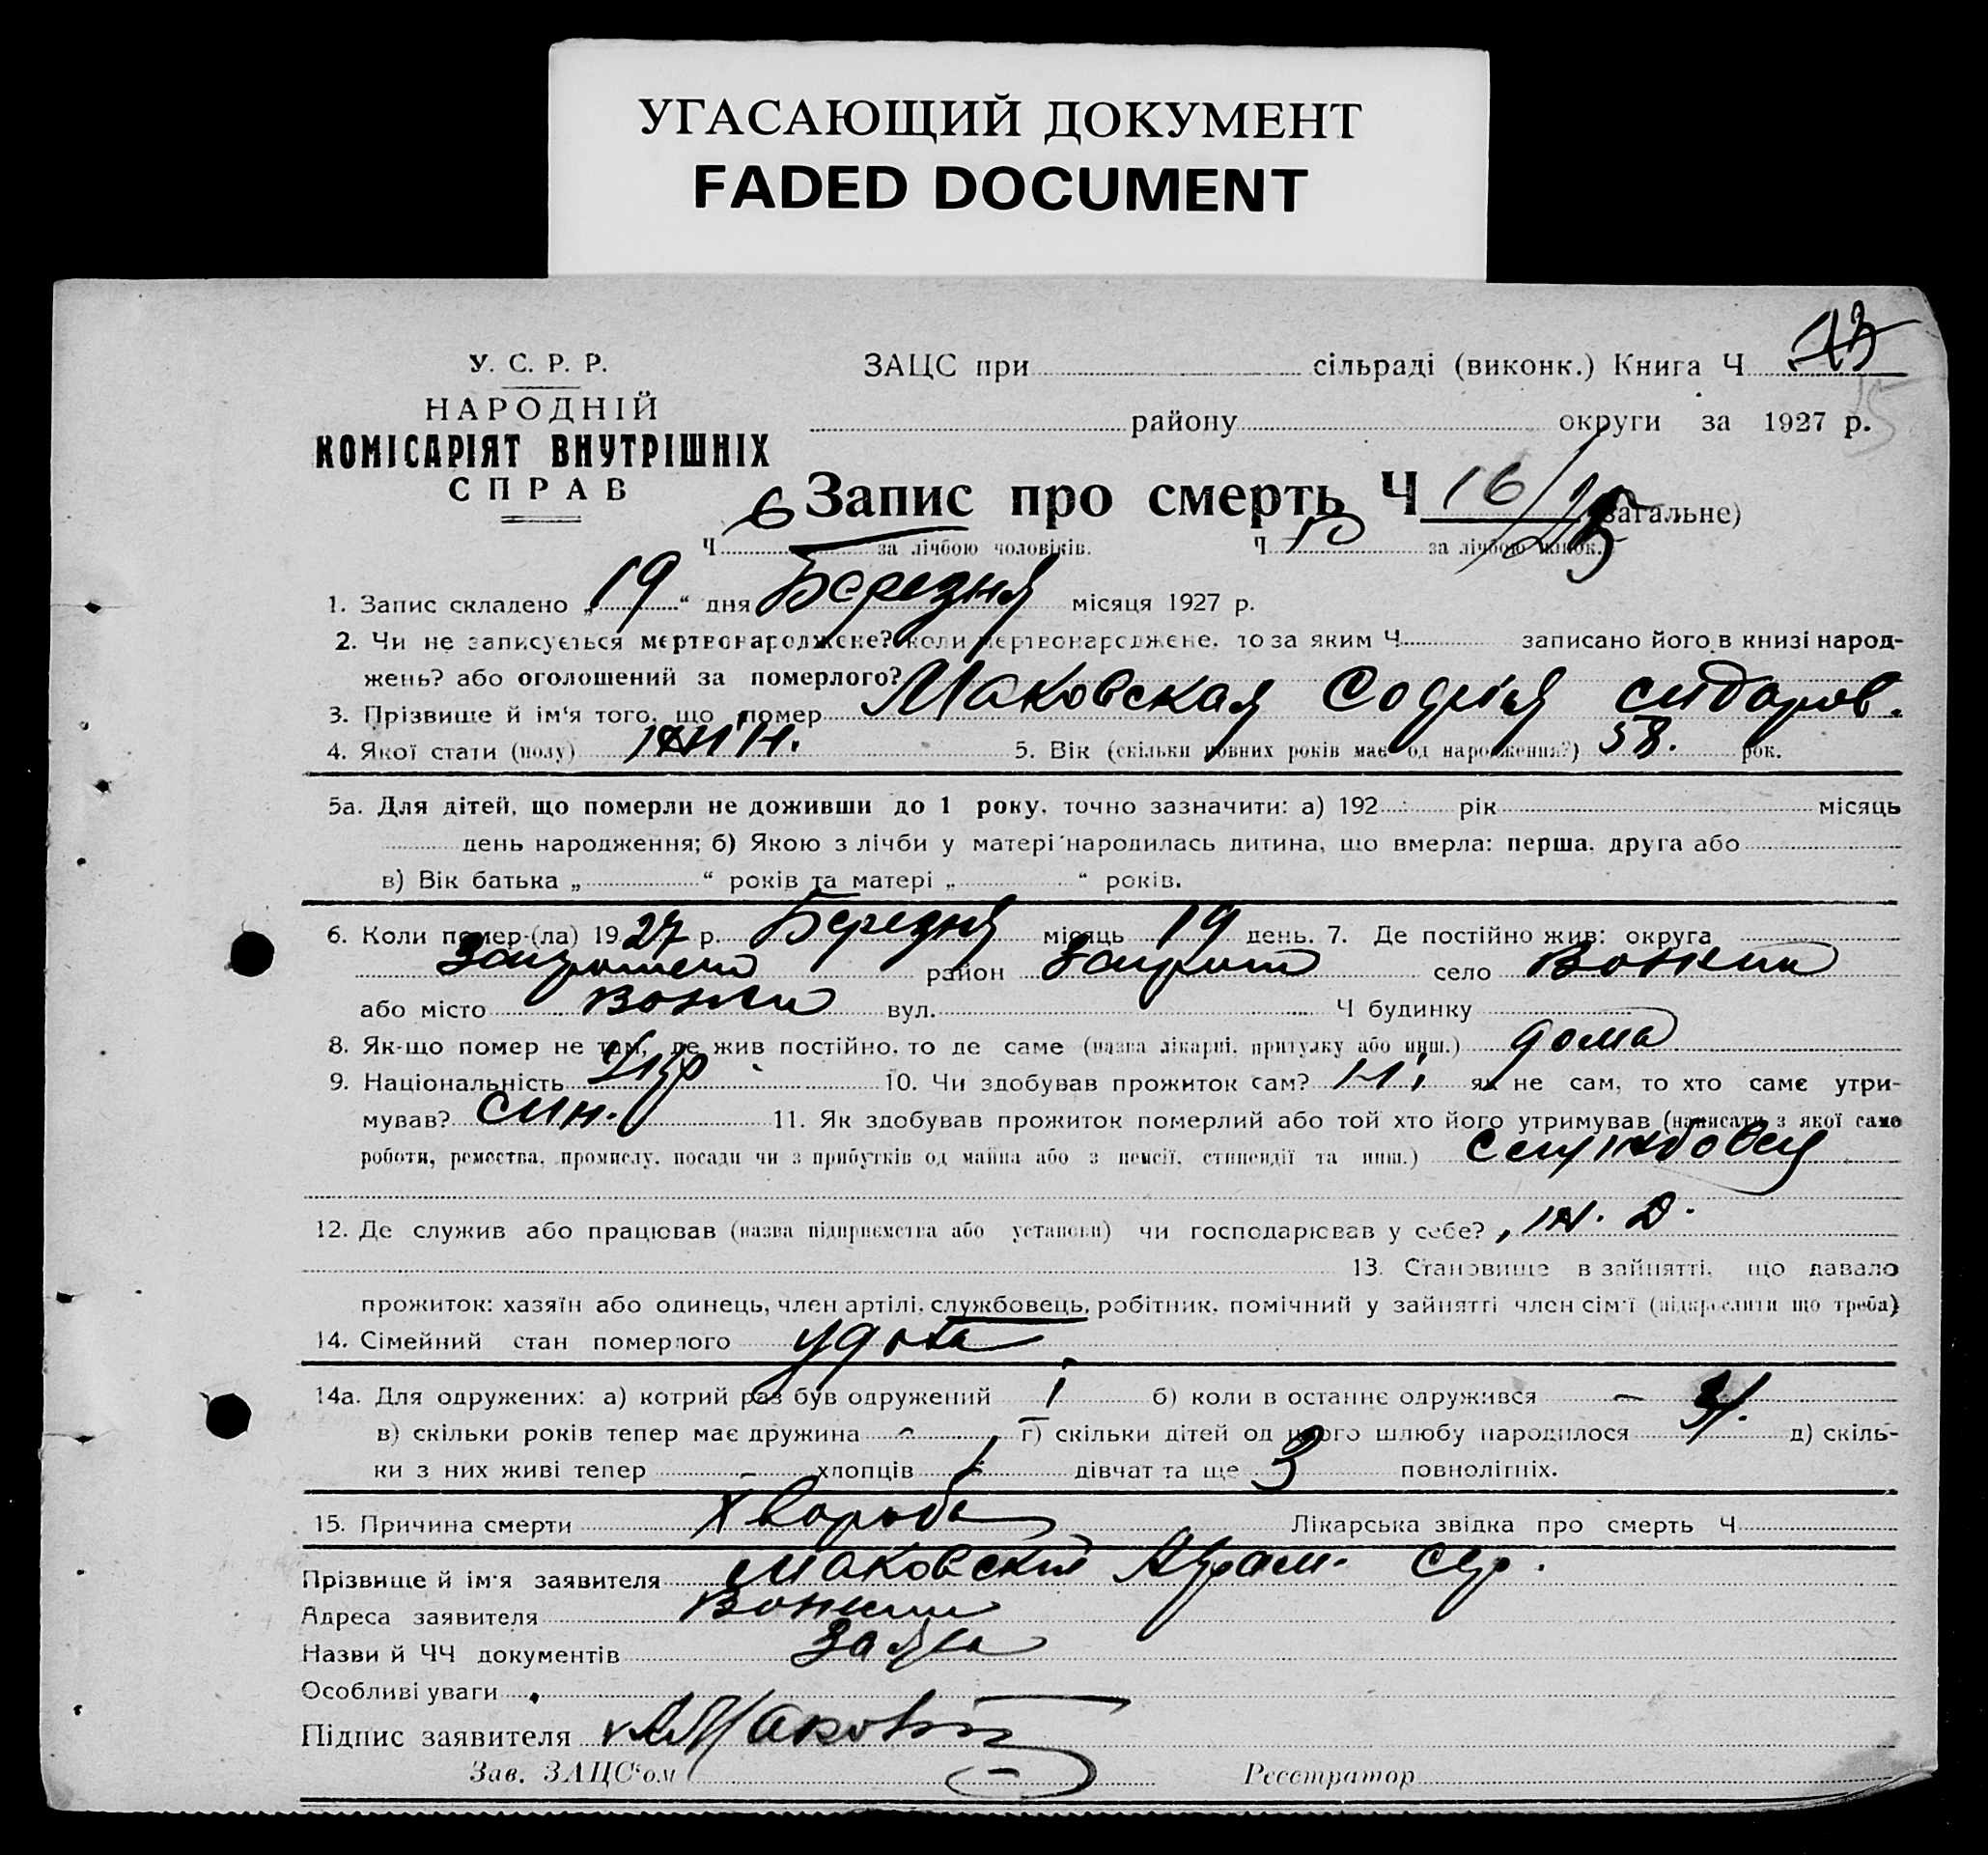 УГАСАЮЩИЙ ДОКУМЕНТ
FADED DOCUMENT
У. С. Р. Р.
НАРОДНІЙ
КОМІСАРІЯТ ВНУТРІШНІХ
СПРАВ
ЗАЦС при сільраді (виконк.) Книга Ч
району округи за 1927 р.
Запис про смерть Ч 16/ (загальне)
Ч 6 за лічбою чоловіків. Ч 10 за лічбою жінок.
1. Запис складено „19“ дня Березня місяця 1927 р.
2. Чи не записується мертвонароджене? коли мертвонароджене, то за яким Ч записано його в книзі народ-
жень? або оголошений за померлого?
3. Прізвище й ім'я того, що помер Маковская Софія Сидоров.
4. Якої стати (полу) жін. 5. Вік (скільки повних років має од народження?) 58. рок.
5а. Для дітей, що померли не доживши до 1 року, точно зазначити: а) 192 рік місяць
день народження; б) Якою з лічби у матері народилась дитина, що вмерла: перша, друга або
в) Вік батька „ “ років та матері „ “ років.
6. Коли помер-(ла) 1927 р. Березня місяць 19 день. 7. Де постійно жив: округа
район село
або місто вул. Ч будинку
8. Як-що помер не там, де жив постійно, то де саме (назва лікарні, притулку або инш.) дома
9. Національність Укр 10. Чи здобував прожиток сам? Ні як не сам, то хто саме утри-
мував? син. 11. Як здобував прожиток померлий або той хто його утримував (написати з якої саме
роботи, ремества, промислу, посади чи з прибутків од майна або з пенсії, стипендії та инш.) службовец
12. Де служив або працював (назва підприємства або установи) чи господарював у себе? ж. д.
13. Становище в зайнятті, що давало
прожиток: хазяїн або одинець, член артілі, службовець, робітник, помічний у зайнятті член сім'ї (підкреслити що треба)
14. Сімейний стан померлого удова
14а. Для одружених: а) котрий раз був одружений 1 б) коли в останнє одружився –
в) скільки років тепер має дружина - г) скільки дітей од цього шлюбу народилося д) скіль-
ки з них живі тепер - хлопців дівчат та ще 3 повнолітніх.
15. Причина смерти хвороба Лікарська звідка про смерть Ч
Прізвище й ім'я заявителя Маковский
Адреса заявителя
Назви й ЧЧ документів заява
Особливі уваги
Підпис заявителя
Зав. ЗАЦС'ом Реєстратор